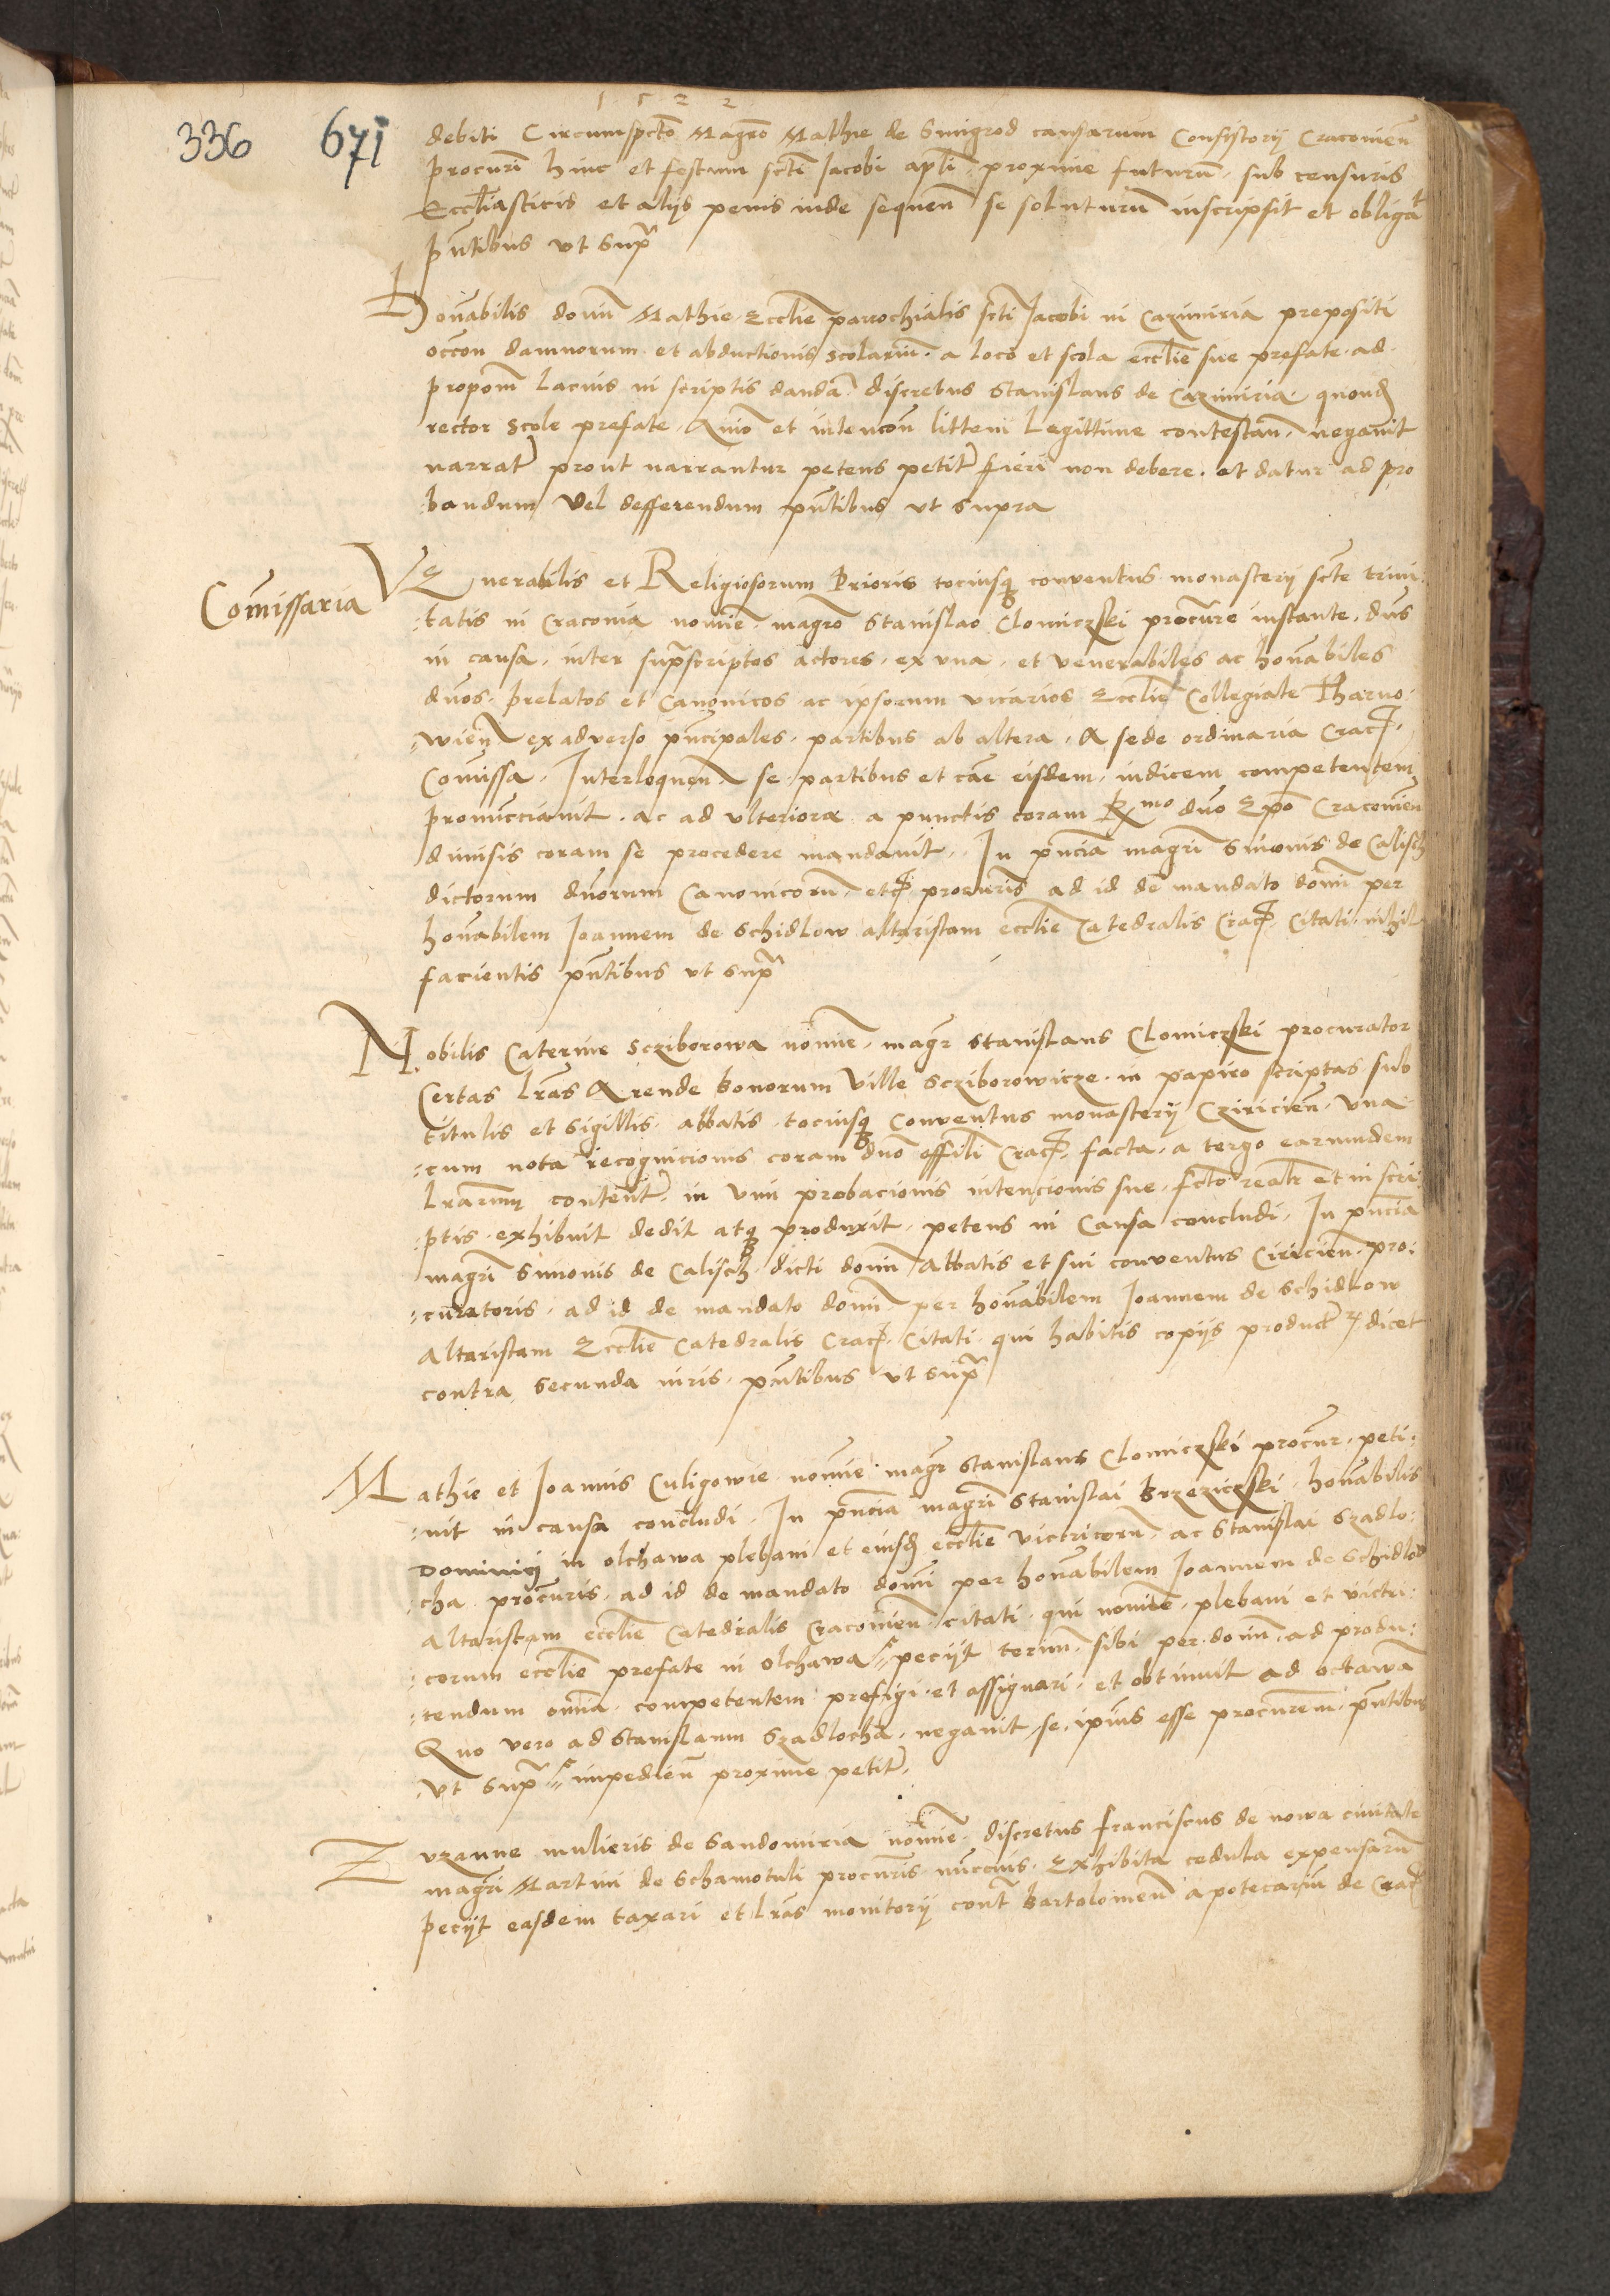 1522
336 671
debiti Circumspcto Magro Mathie de Smigrod causarum Consistorij Cracovien
procuri hinc et festum scti Jacobi apli proxime futurum sub censuris
Ecclasticis et alijs penis inde sequen se soluturum inscripsit et obligat
pntibus ut supra
Honabilis domi Mathie Ecclie parrochialis scti Jacobi in Cazimiria prepositi
occon damnorum et abductionis scolarium a loco et scola ecclie sue prefate ad
propom lacius in scriptis dandam discrebus Stanislaus de Cazimiria quond
rector scole prefate Anio et intencon littem legittime contestan negavit
narrata prout narrantur petens petita fieri non debere et datur ad pro
bandum vel defferendum pntibus ut supra
Comissaria
VEnerabilis et Religiosorum Prioris tociusq conventus monasterij scte trini
tatis in Cracovia nomie magro Stanislao Clomiczski procurare instante dns
in causa inter suprascriptos actores ex una et venerabiles ac honabiles
dnos prelatos et Canonicos ac ipsorum vicarios Ecclie Collegiate Tharno
wien ex adverso pncipales partibus ab altera A sede ordinaria Crac
Comissa Interloquen se partibus et cae eisdem iudicem competentem
pronuncciavit ac ad ulteriora a punctis coram Rmo dno Epo Cracovien
dimisis coram se procedere mandavit In pncia magri Simonis de Calisch
dictorum dnorum Canonicorum etc procuris ad id de mandato domi per
honabilem Joannem de Schidlow altaristam ecclie Catedralis Crac Citati nihil
facientis pntibus ut supra
Nobilis Caterine Scziborowa nomie magr Stanislaus Clomiczski procurator
Certas lras Arende bonorum ville Scziborowicze in papiro scriptas sub
titulis et sigillis abbatis tociusq Conventus monasterij Czиricien una
cum nota recognicionis coram dno offili Crac facta a tergo earumdem
lrarum contenta in vim probacionis intencionis sue fcto realr et in scri
ptis exhibuit dedit atq produxit petens in Causa concludi In pncia
magri Simonis de Calisch dicti domi Abbatis et sui conventus Ciricien pro
curatoris ad id de mandato domi per honabilem Joannem de Schidlow
Altaristam Ecclie Catedralis Crac Citati qui habitis copijs productorum dicet
contra secunda iuris pntibus ut supra
Mathie et Joannis Culigowie nomie magr Stanislaus Clomiczski procur peti
vit in causa concludi In pncia magri Stanislai Brzeziczski honabilis
Dominici in Olchawa plebani et eiusd ecclie victricorum ac Stanislai Szadlo
cha procuris ad id de mandato domi per honabilem Joannem de Schidlow
Altaristam ecclie Catedralis Cracovien citati qui nomine plebani et victri
corum ecclie prefate in Olchawa pecijt termi sibi per domi ad produ
cendum omnia competentem prefigi et assignari et obtinuit ad octavam
Quo vero ad Stanislaum Szadlocha negavit se ipius esse procurem pntibus
ut supra impedien proxime petita
Zuzanne mulieris de Sandomiria nomie discretus Franciscus de nowa civitate
magri Martini de Schamotuli procuris nunccius Exhibita cedula expensarum
pecijt easdem taxari et lras monitorij contra Bartolomeum apotecarium de Crac